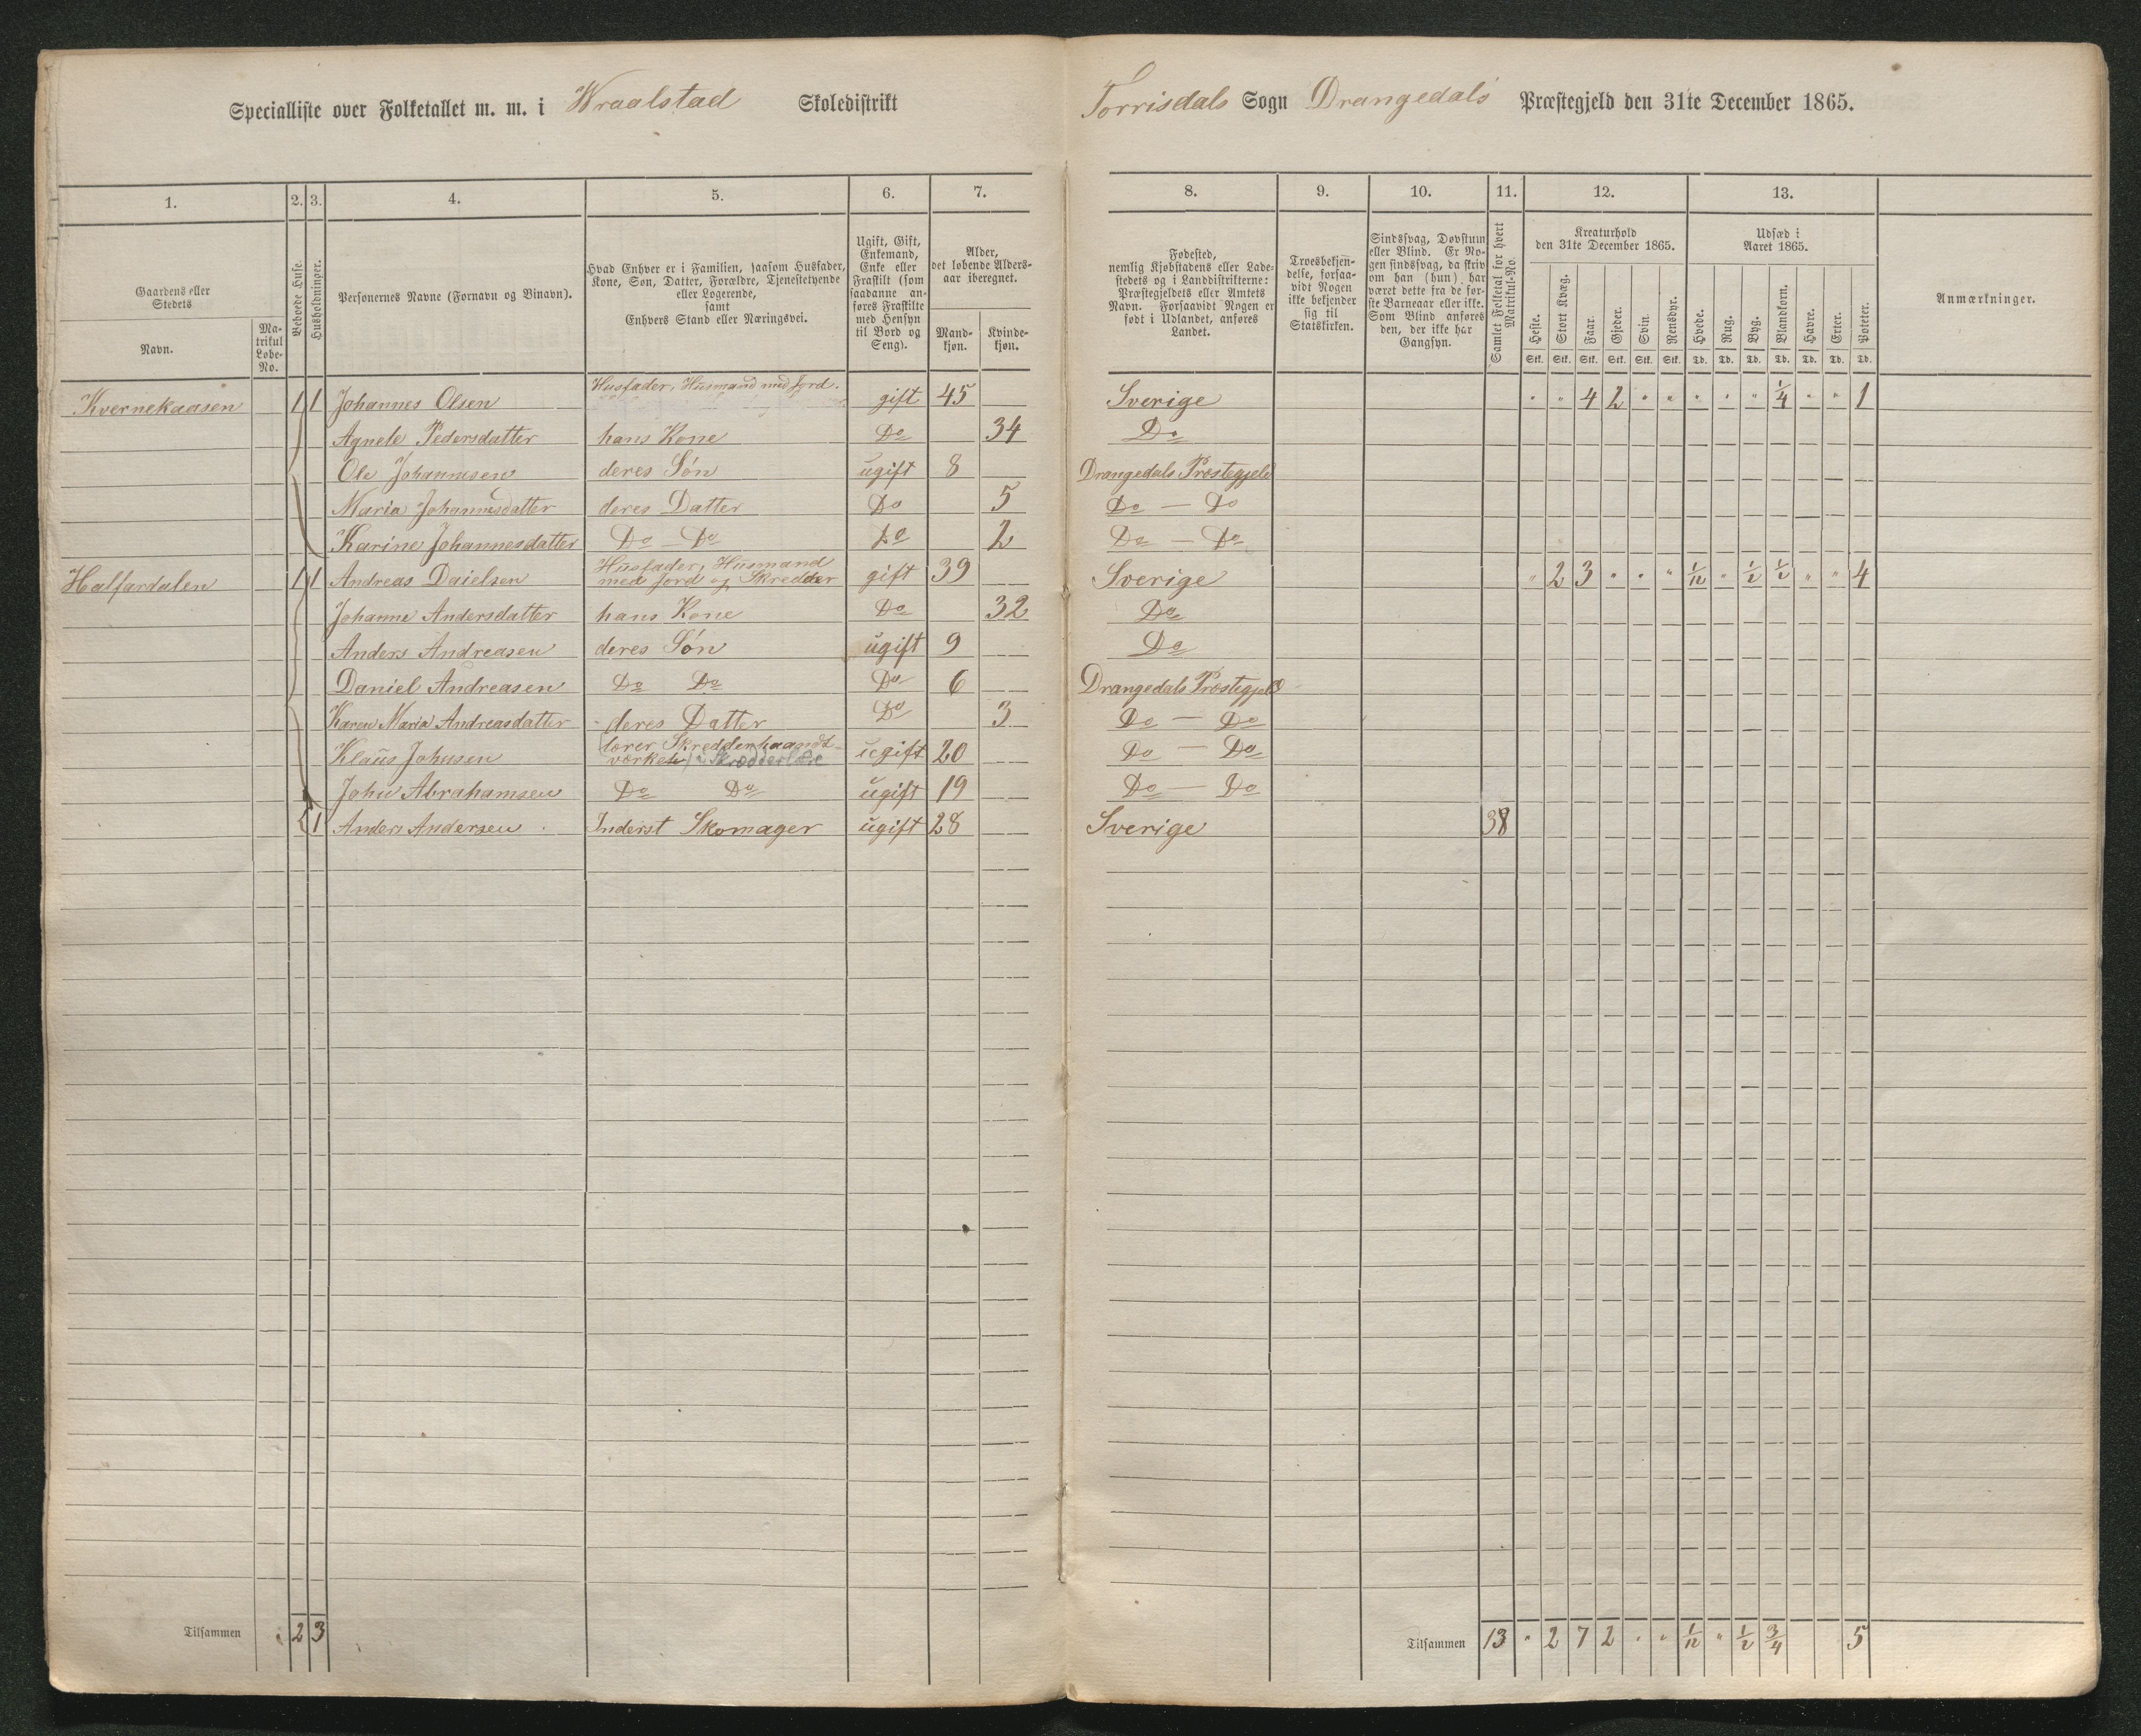 Specialliste over Folketallet m. m. i Wraalstad Skoledistrikt Torrisdals Sogn Drangedals Præstegjeld den 31te December 1865.
1. 2. 3. 4. 5. 6. 7. 8. 9. 10. 11. 12. 13.
Gaardens eller Stedets
Navn.
Ma-
trikul
Løbe-
No.
Beboede Huse.
Husholdninger.
Personernes Navne (Fornavn og Binavn).
Hvad Enhver er i Familien, saasom Husfader,
Kone, Søn, Datter, Forældre, Tjenestetyende
eller Logerende,
samt
Enhvers Stand eller Næringsvei.
Ugift, Gift,
Enkemand,
Enke eller
Fraskilt (som
saadanne an-
føres Fraskilte
med Hensyn
til Bord og
Seng).
Alder,
det løbende Alders-
aar iberegnet.
Mand-
kjøn.
Kvinde-
kjøn.
Fødested,
nemlig Kjøbstadens eller Lade-
stedets og i Landdistrikterne:
Præstegjeldets eller Amtets
Navn. Forsaavidt Nogen er
født i Udlandet, anføres
Landet.
Troesbekjen-
delse, forsaa-
vidt Nogen
ikke bekjender
sig til
Statskirken.
Sindssvag, Døvstum
eller Blind. Er No-
gen sindssvag, da skriv
om han (hun) har
været dette fra de før-
ste Barneaar eller ikke.
Som Blind anføres
den, der ikke har
Gangsyn.
Samlet Folketal for hvert
Matrikul-No.
Kreaturhold
den 31te December 1865.
Heste. Stort Kvæg. Faar. Gjeder. Svin. Rensdyr.
Stk. Stk. Stk. Stk. Stk. Stk.
Udsæd i
Aaret 1865.
Hvede. Rug. Byg. Blandkorn. Havre. Erter. Poteter.
Td. Td. Td. Td. Td. Td. Td.
Anmærkninger.
Kvernekaasen 1 1 Johannes Olsen Husfader, Husmand med Jord. gift 45 Sverige " " 4 2 " " " " " 1/4 " " 1
Agnete Pedersdatter hans Kone Do 34 Do
Ole Johannesen deres Søn ugift 8 Drangedals Præstegjeld
Maria Johannesdatter deres Datter Do 5 Do — Do
Karine Johannesdatter Do — Do Do 2 Do — Do
Halfardalen 1 1 Andreas Daielsen Husfader, Husmand
med Jord og Skredder gift 39 Sverige " 2 3 " " " 1/12 " 1/2 1/2 " " 4
Johanne Andersdatter hans Kone Do 32 Do
Anders Andreasen deres Søn ugift 9 Do
Daniel Andreasen Do Do Do 6 Drangedals Præstegjeld
Karen Maria Andreasdatter deres Datter Do 3 Do — Do
Klaus Johnsen lærer Skredderhaandt-
værket i Skrædderlære ugift 20 Do — Do
John Abrahamsen Do Do ugift 19 Do — Do
1 Anders Andersen Inderst Skomager ugift 28 Sverige 38
Tilsammen 2 3
Tilsammen 13 " 2 7 2 " " 1/12 " 1/2 3/4 5